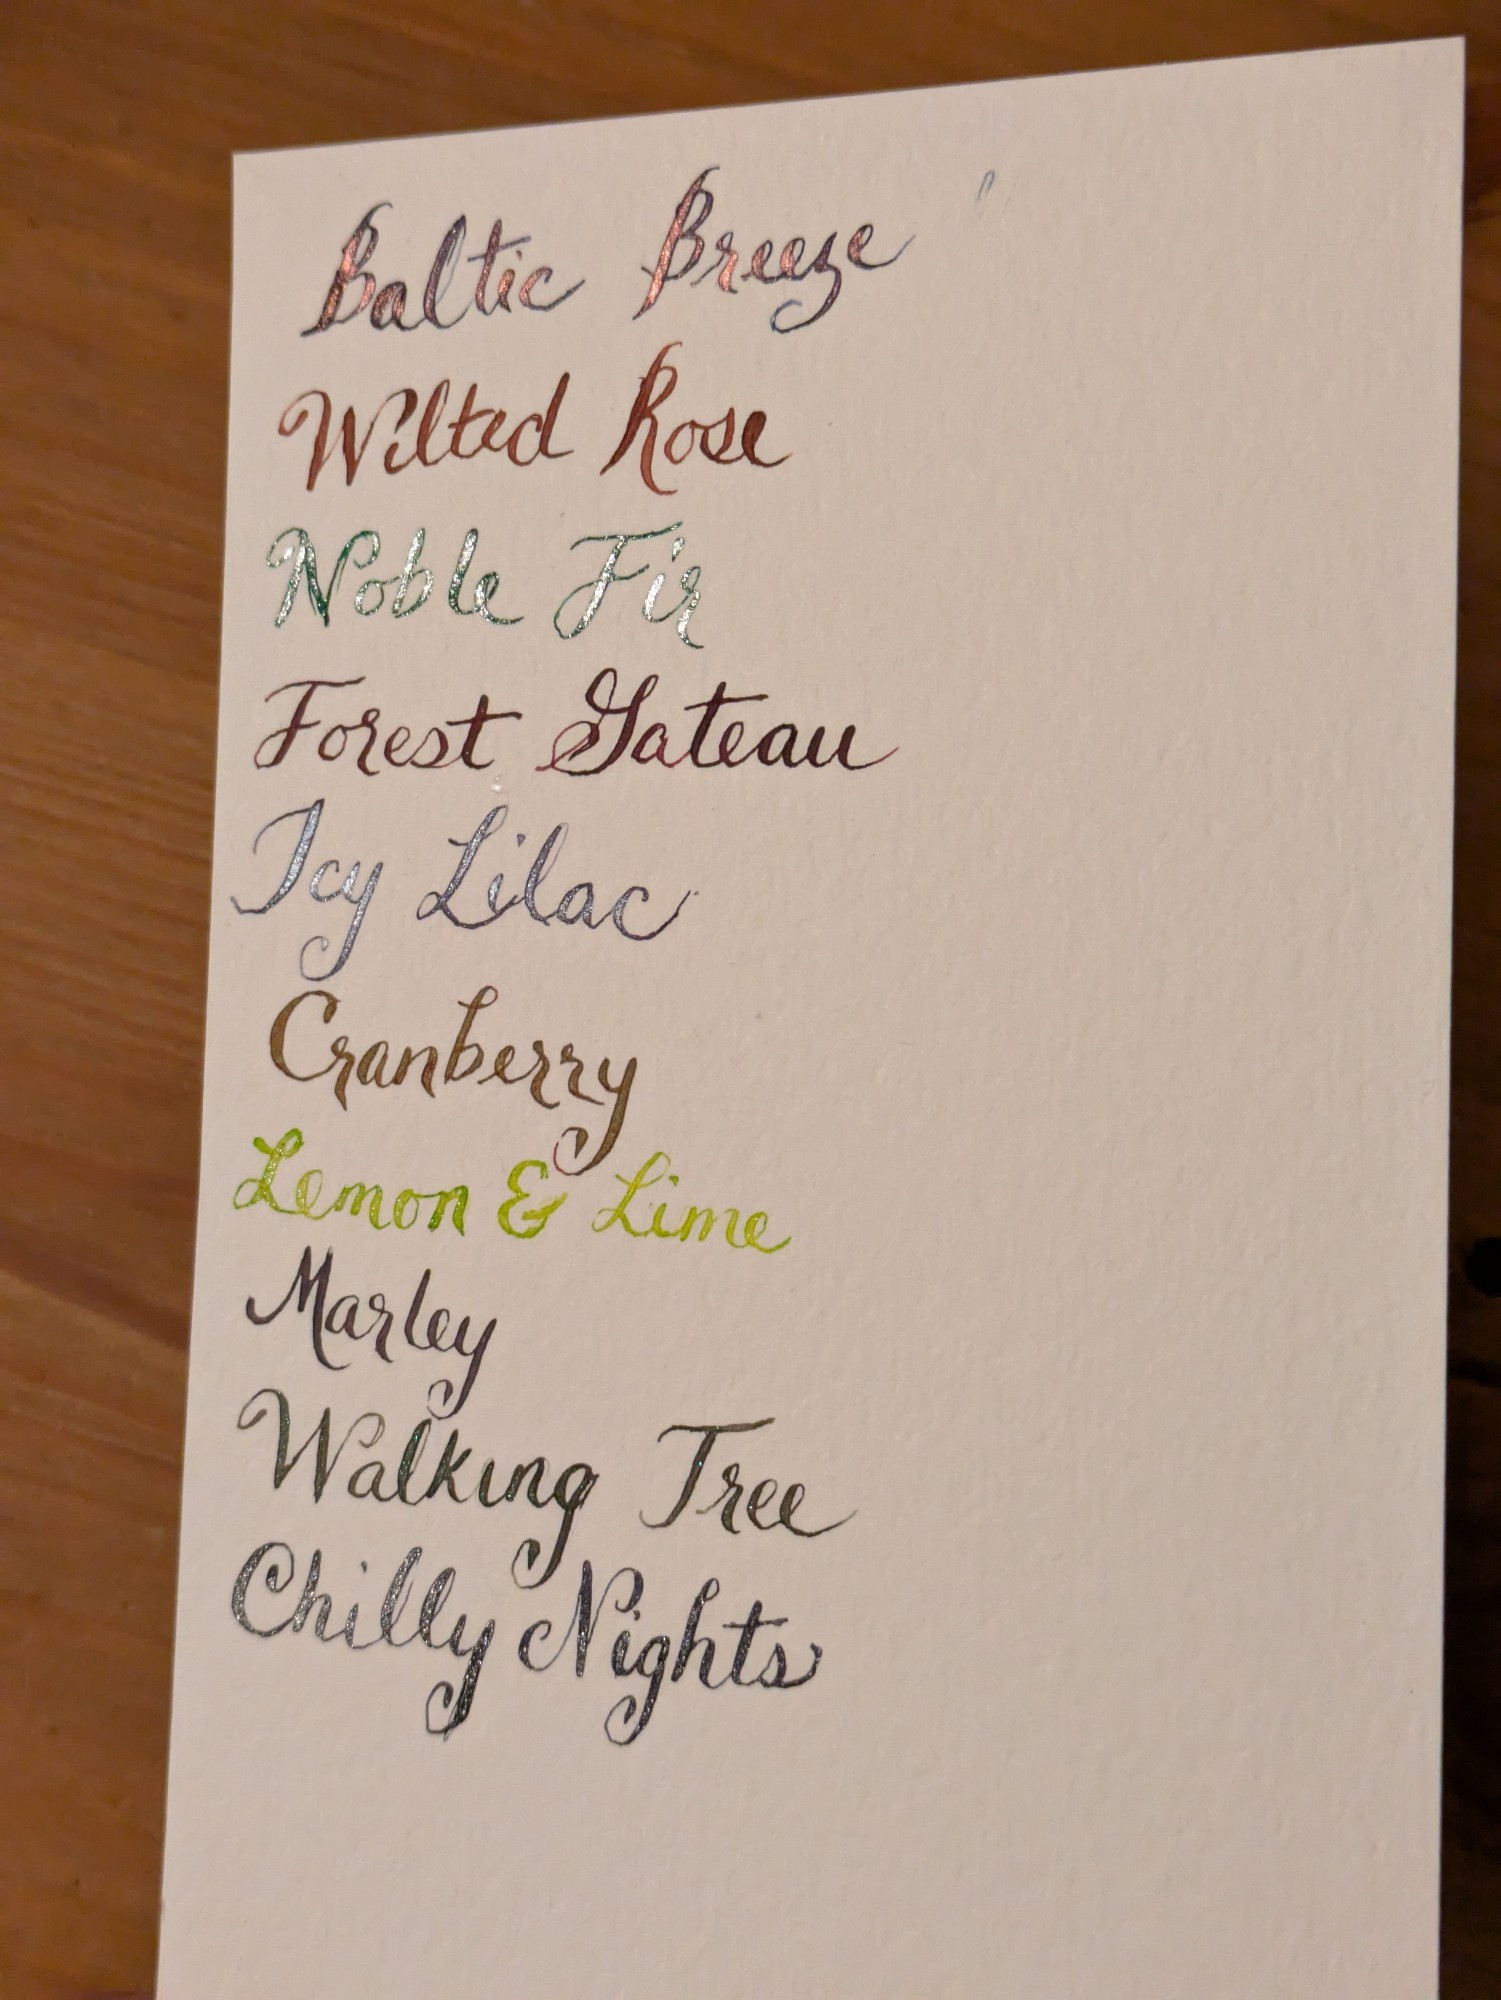 Baltic Breeze
Wilted Rose
Noble Fir
Forest Gateau
Icy Lilac
Cranberry
Lemon & Lime
Marley
Walking Tree
Chilly Nights